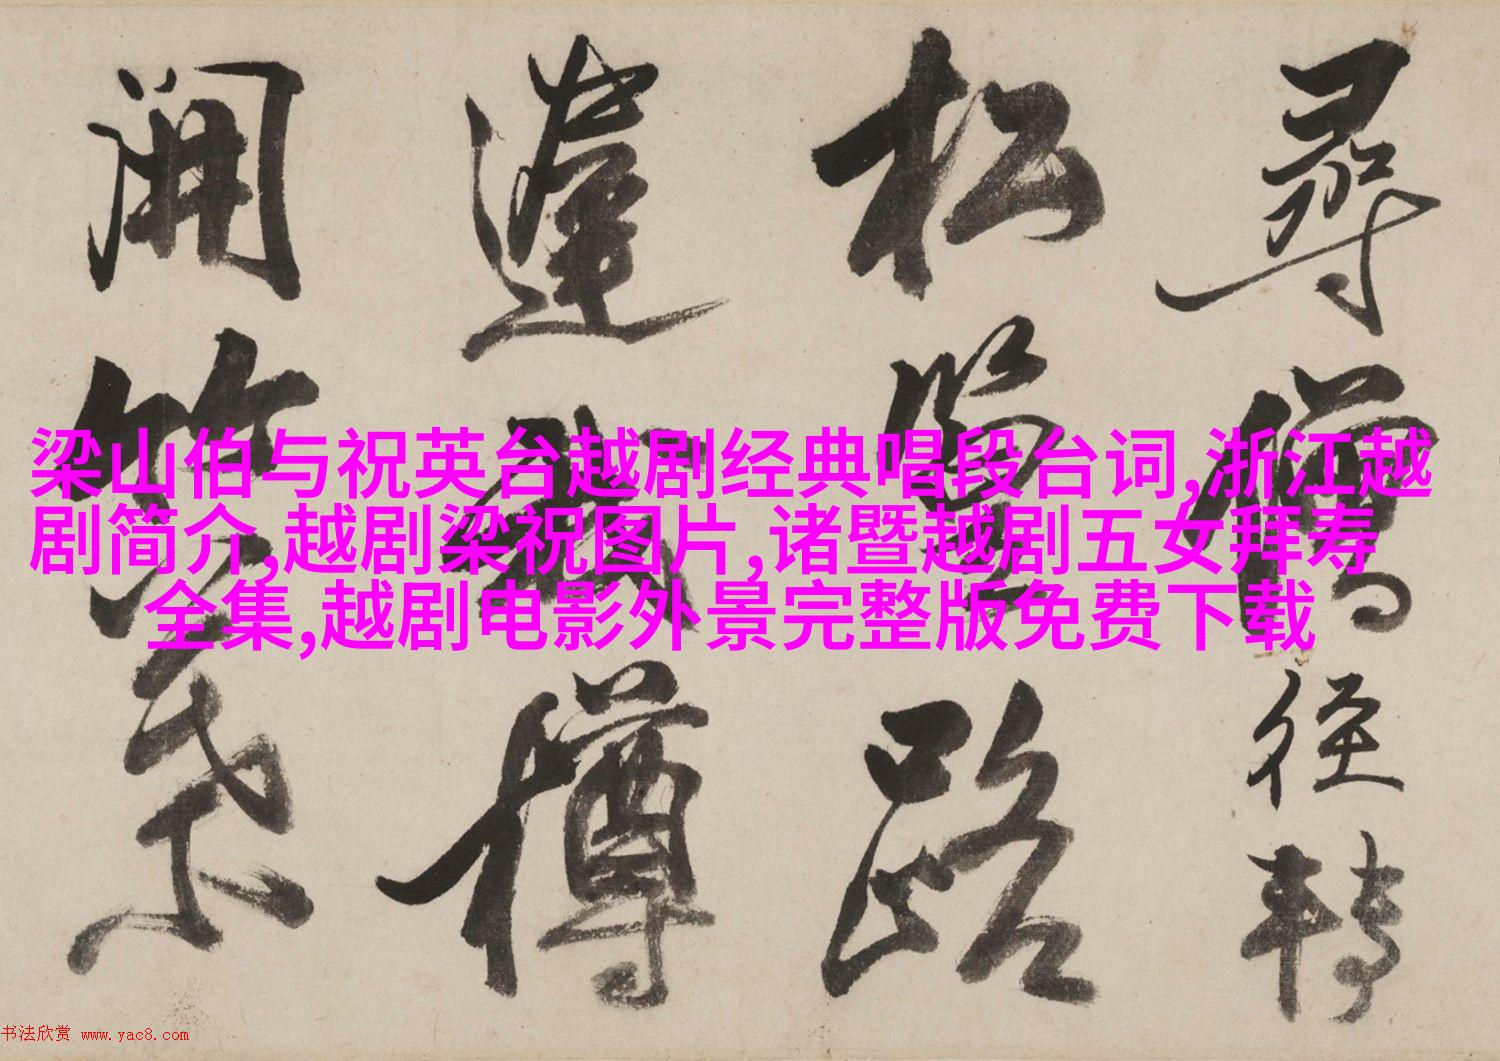 尋僧径轉
松路
樽
開
梁山伯与祝英台越剧经典唱段台词,浙江越
剧简介,越剧梁祝图片,诸暨越剧五女拜寿
全集,越剧电影外景完整版免费下载
书法欣赏 www.yac8.com